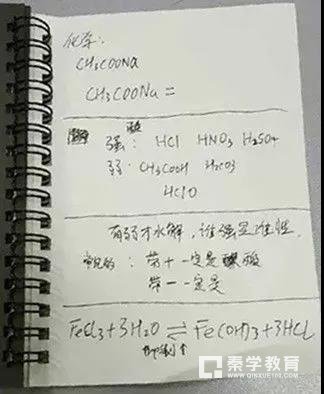 化学：
CH3COONa
CH3COONa =
酸
强： HCl HNO3 H2SO4
弱： CH3COOH H2CO3
HClO
有弱才水解，谁强显谁性
常见的： 带十一定是酸
带一一定是
FeCl3+3H2O ⇌ Fe(OH)3+3HCl
秦学教育
www.qinxue100.com